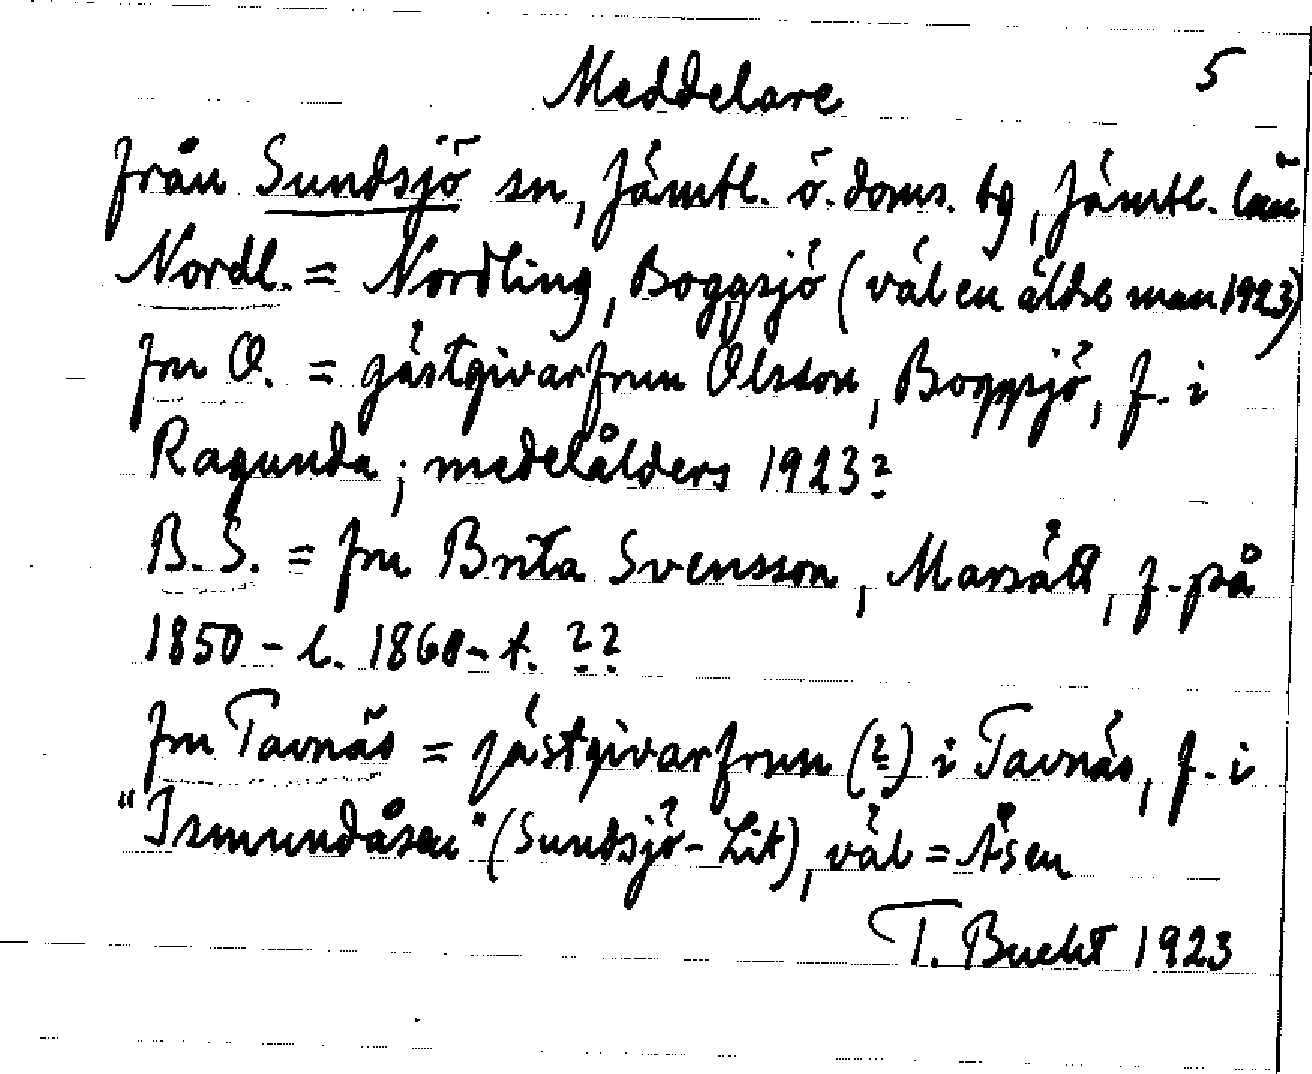 Meddelare 5
från Sundsjö sn, Jämtl. ö. doms. tg, Jämtl. län
Nordl. = Nordling, Boggsjö (väl en äldre man 1923)
fru O. = gästgivarfrun Olsson, Boggsjö, f. i
Ragunda; medelålders 1923?
B.S. = fru Brita Svensson, Marsätt, f. på
1850- l. 1860-t. ??
fru Tavnäs = gästgivarfrun (?) i Tavnäs, f. i
"Ismundåsen" (Sundsjö-Lit), väl = Åsen
T. Bucht 1923